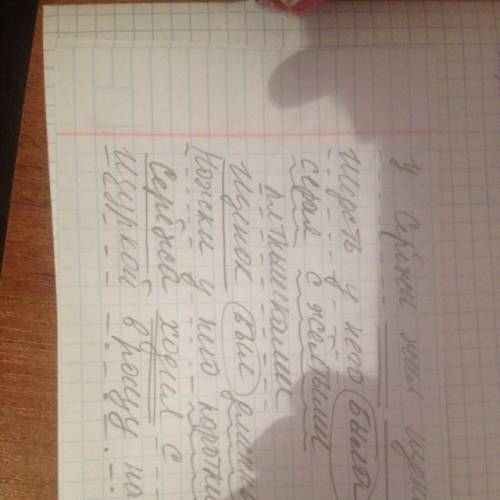 У Серёжи жил щен
Шерсть у него была
серая с жёлтыми
пятнышками
Щенок был длинн
Ножки у него коротки
Серёжа ходил с
Шуркой в рощу на